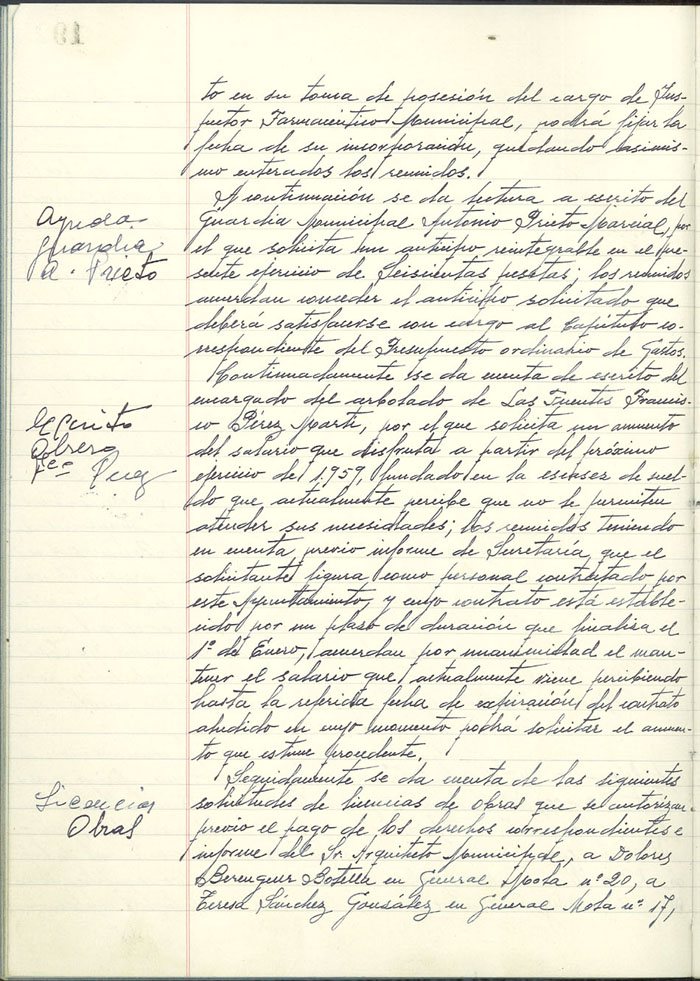 to en su toma de posesión del cargo de Ins-
pector Farmacéutico Municipal, podrá fijar la
fecha de su incorporación, quedando asimis-
mo enterados los reunidos.
A continuación se da lectura a escrito del
Guardia Municipal Antonio Prieto Marcial, por
el que solicita un anticipo reintegrable en el pre-
sente ejercicio de Seiscientas pesetas; los reunidos
acuerdan conceder el anticipo solicitado que
deberá satisfacerse con cargo al Capítulo co-
rrespondiente del Presupuesto ordinario de Gastos.
Ayuda
guardia
A. Prieto
Continuadamente se da cuenta de escrito del
encargado del arbolado de Las Fuentes Francis-
co Pérez Marti, por el que solicita un aumento
del salario que disfruta a partir del próximo
ejercicio de 1.959, fundado en la escasez de suel-
do que actualmente percibe que no le permiten
atender sus necesidades; los reunidos teniendo
en cuenta, previo informe de Secretaría, que el
solicitante figura como personal contratado por
este Ayuntamiento, y cuyo contrato está estable-
cido por un plaso de duración que finalisa el
1º de Enero, acuerdan por unanimidad el man-
tener el salario que actualmente viene percibiendo
hasta la referida fecha de expiración del contrato
aludido en cuyo momento podrá solicitar el aumen-
to que estime procedente.
Escrito
Obrero
Fco
Seguidamente se da cuenta de las siguientes
solicitudes de licencias de obras que se autorizan
previo el pago de los derechos correspondientes e
informe del Sr. Arquitecto Municipal, a Dolores
Berenguer Botella en General Mola nº 20, a
Teresa Sánchez Gonsález en General Mola nº 17,
Licencias
Obras